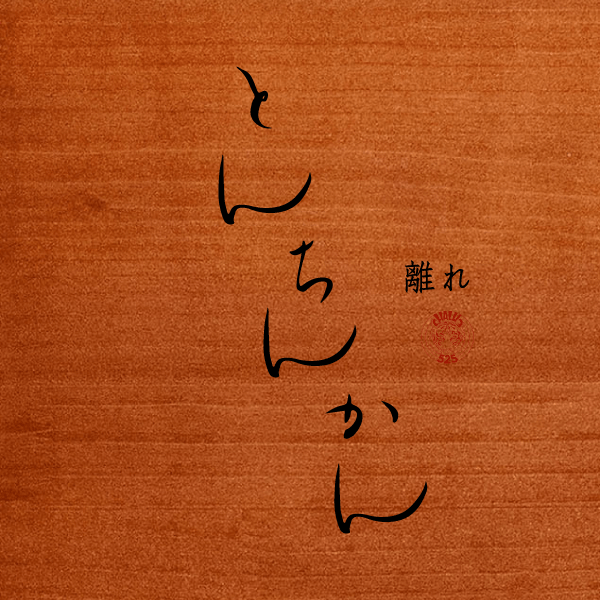 とんちんかん
離れ
525